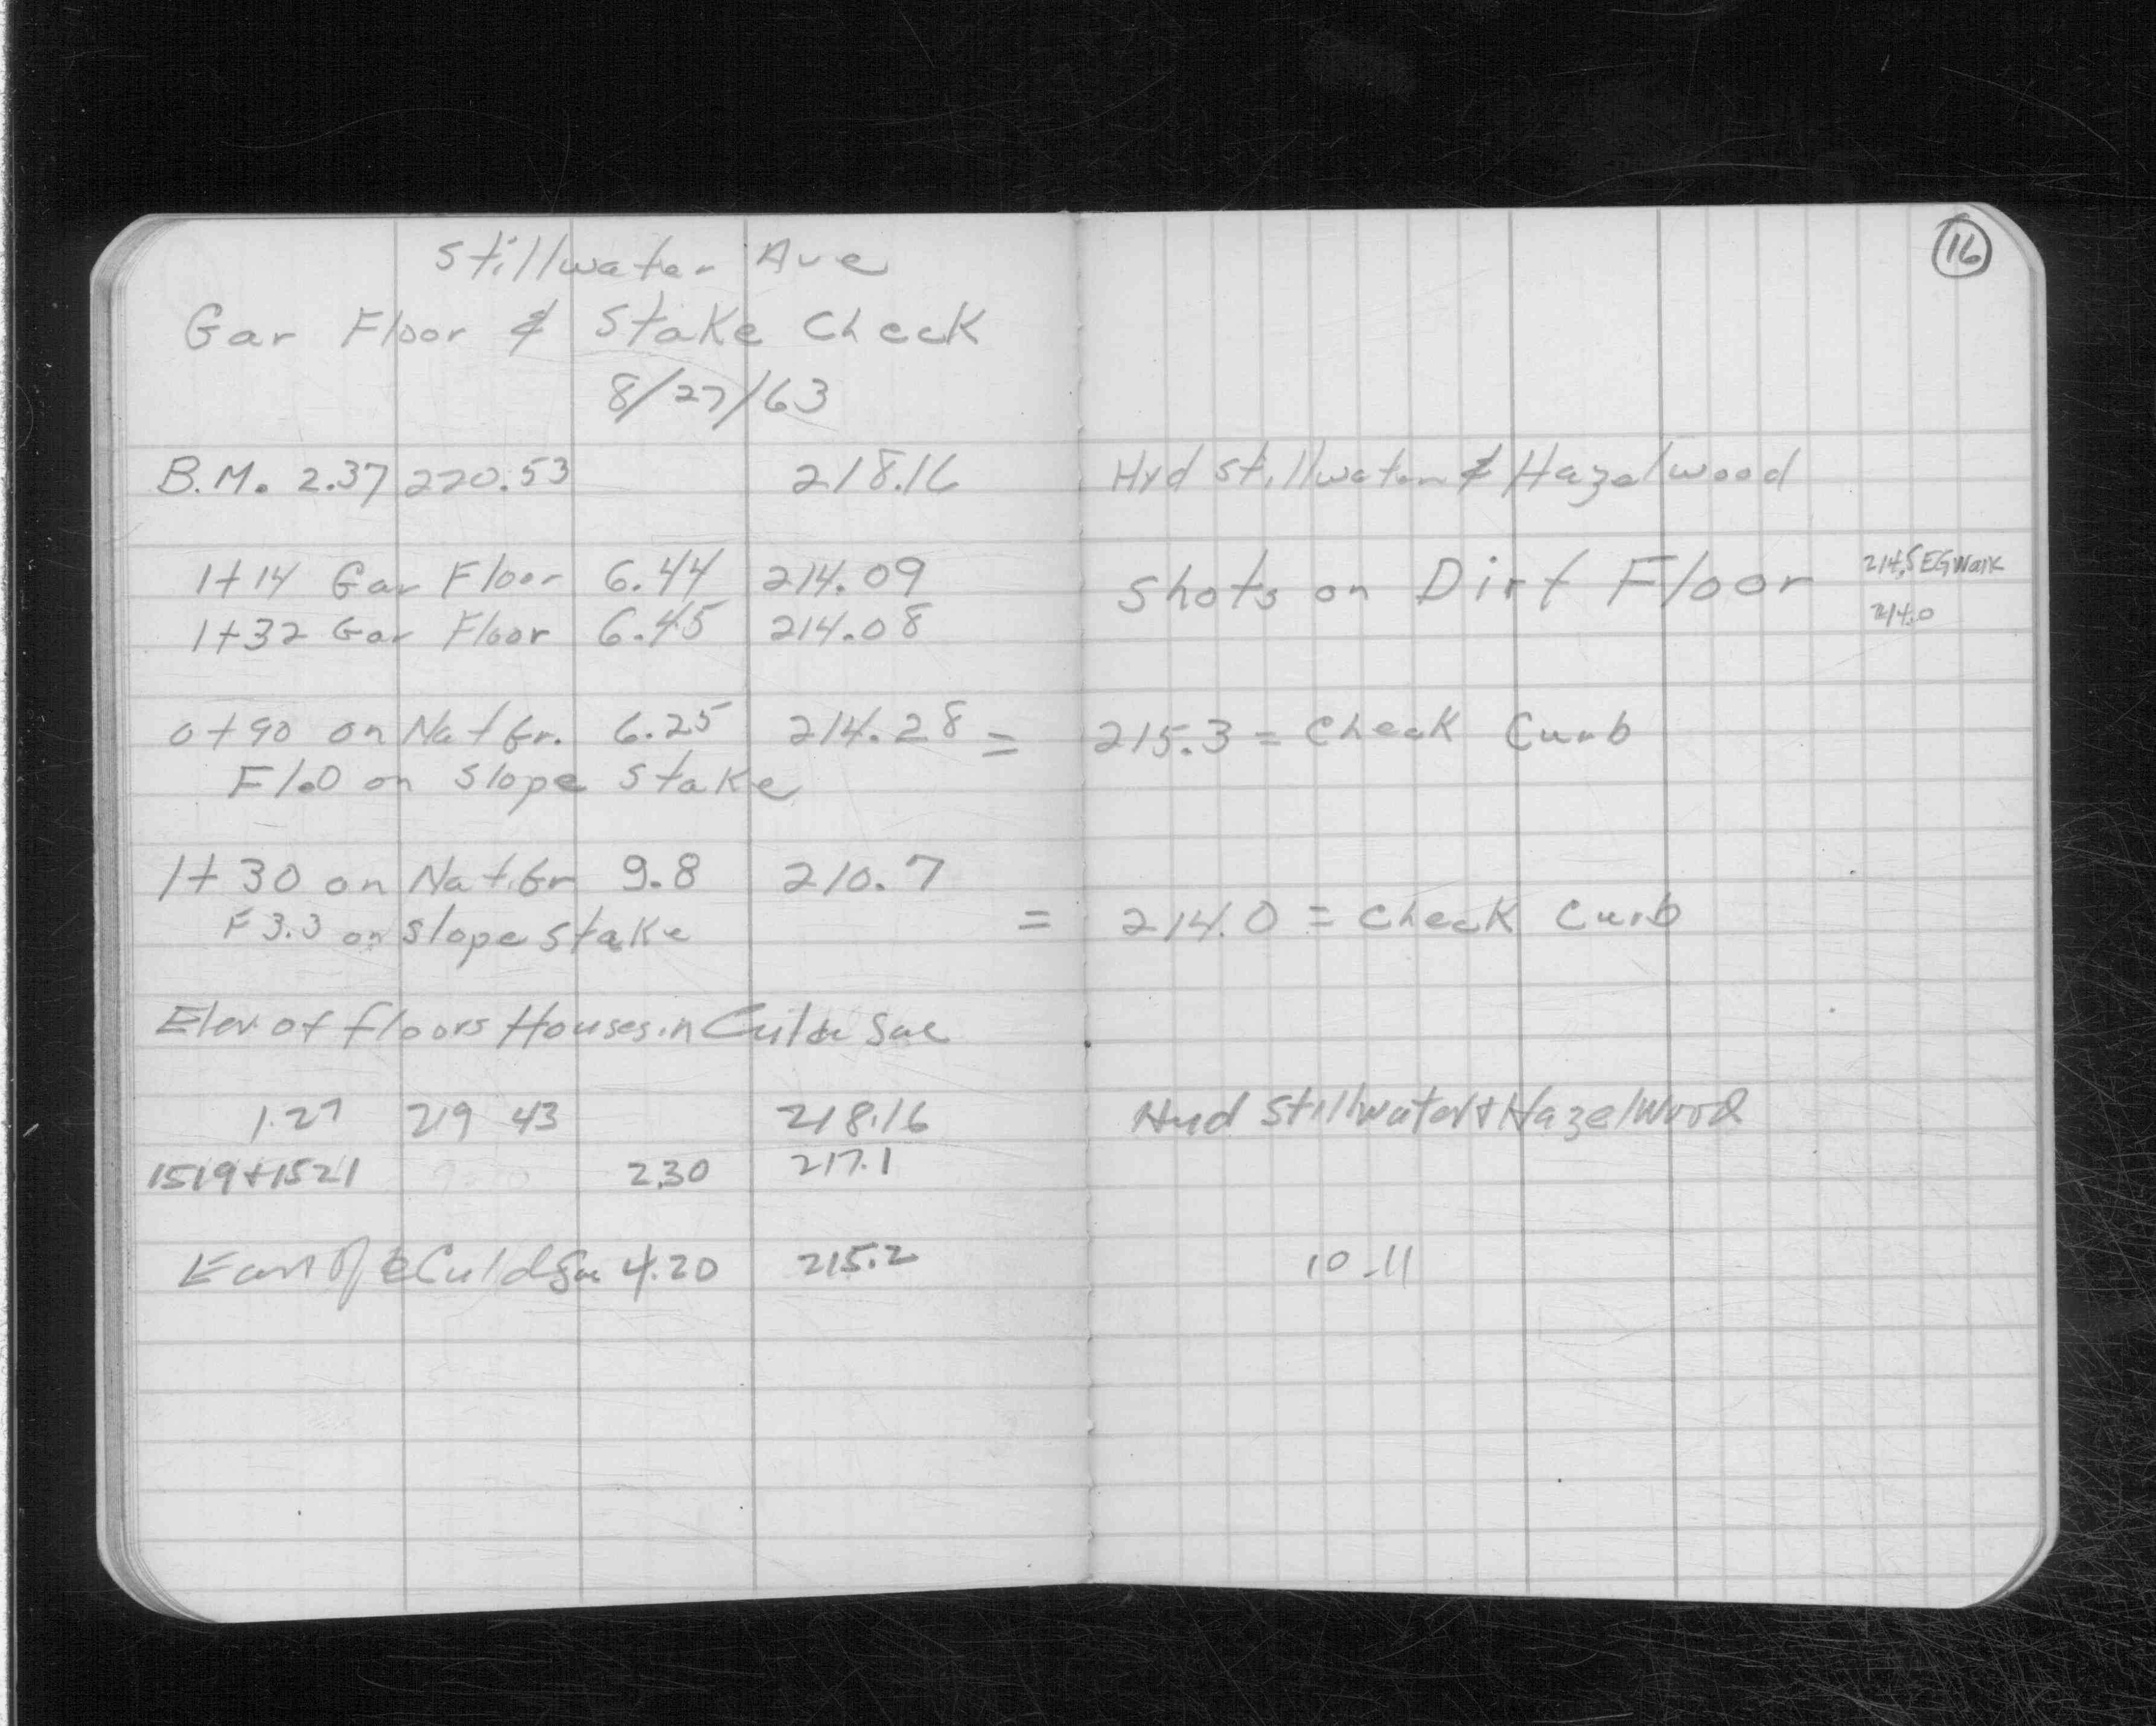 16
Stillwater Ave
Gar Floor & Stake Check
8/27/63
B.M. 2.37 220.53 218.16 Hyd Stillwater & Hazelwood
1+14 Gar Floor 6.44 214.09 Shots on Dirt Floor 214.5 EG Walk
1+32 Gar Floor 6.45 214.08 214.0
0+90 on Nat Gr. 6.25 214.28 = 215.3 = Check Curb
F 1.0 on Slope Stake
1+30 on Nat. Gr 9.8 210.7
F 3.3 on Slope Stake = 214.0 = Check Curb
Elev. of floors Houses in Cul de Sac
1.27 219 43 218.16 Hyd Stillwater & Hazelwood
1519+1521 2.30 217.1
Culd Sac 4.20 215.2 10-11